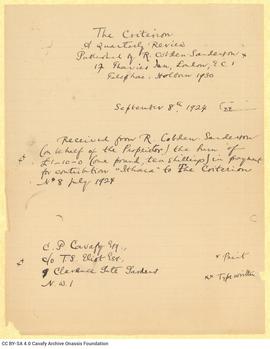 The Criterion
A Quarterly Review
Published by R. Cobden-Sanderson x
17 Thavies Inn, London, E.C.1
Telephone: Holborn 1930
September 8th, 1924
Received from R. Cobden Sanderson
(on behalf of the Proprietor) the sum of
£1-10-0 (one pound, ten shillings) in payment
for contribution "Ithaca" to The Criterion
No 8 July 1924
C. P. Cavafy Esq.,
c/o T. S. Eliot Esq,
9 Clarence Gate Gardens
N.W.1
x Print
xx Typewritten
CC BY-SA 4.0 Cavafy Archive Onassis Foundation